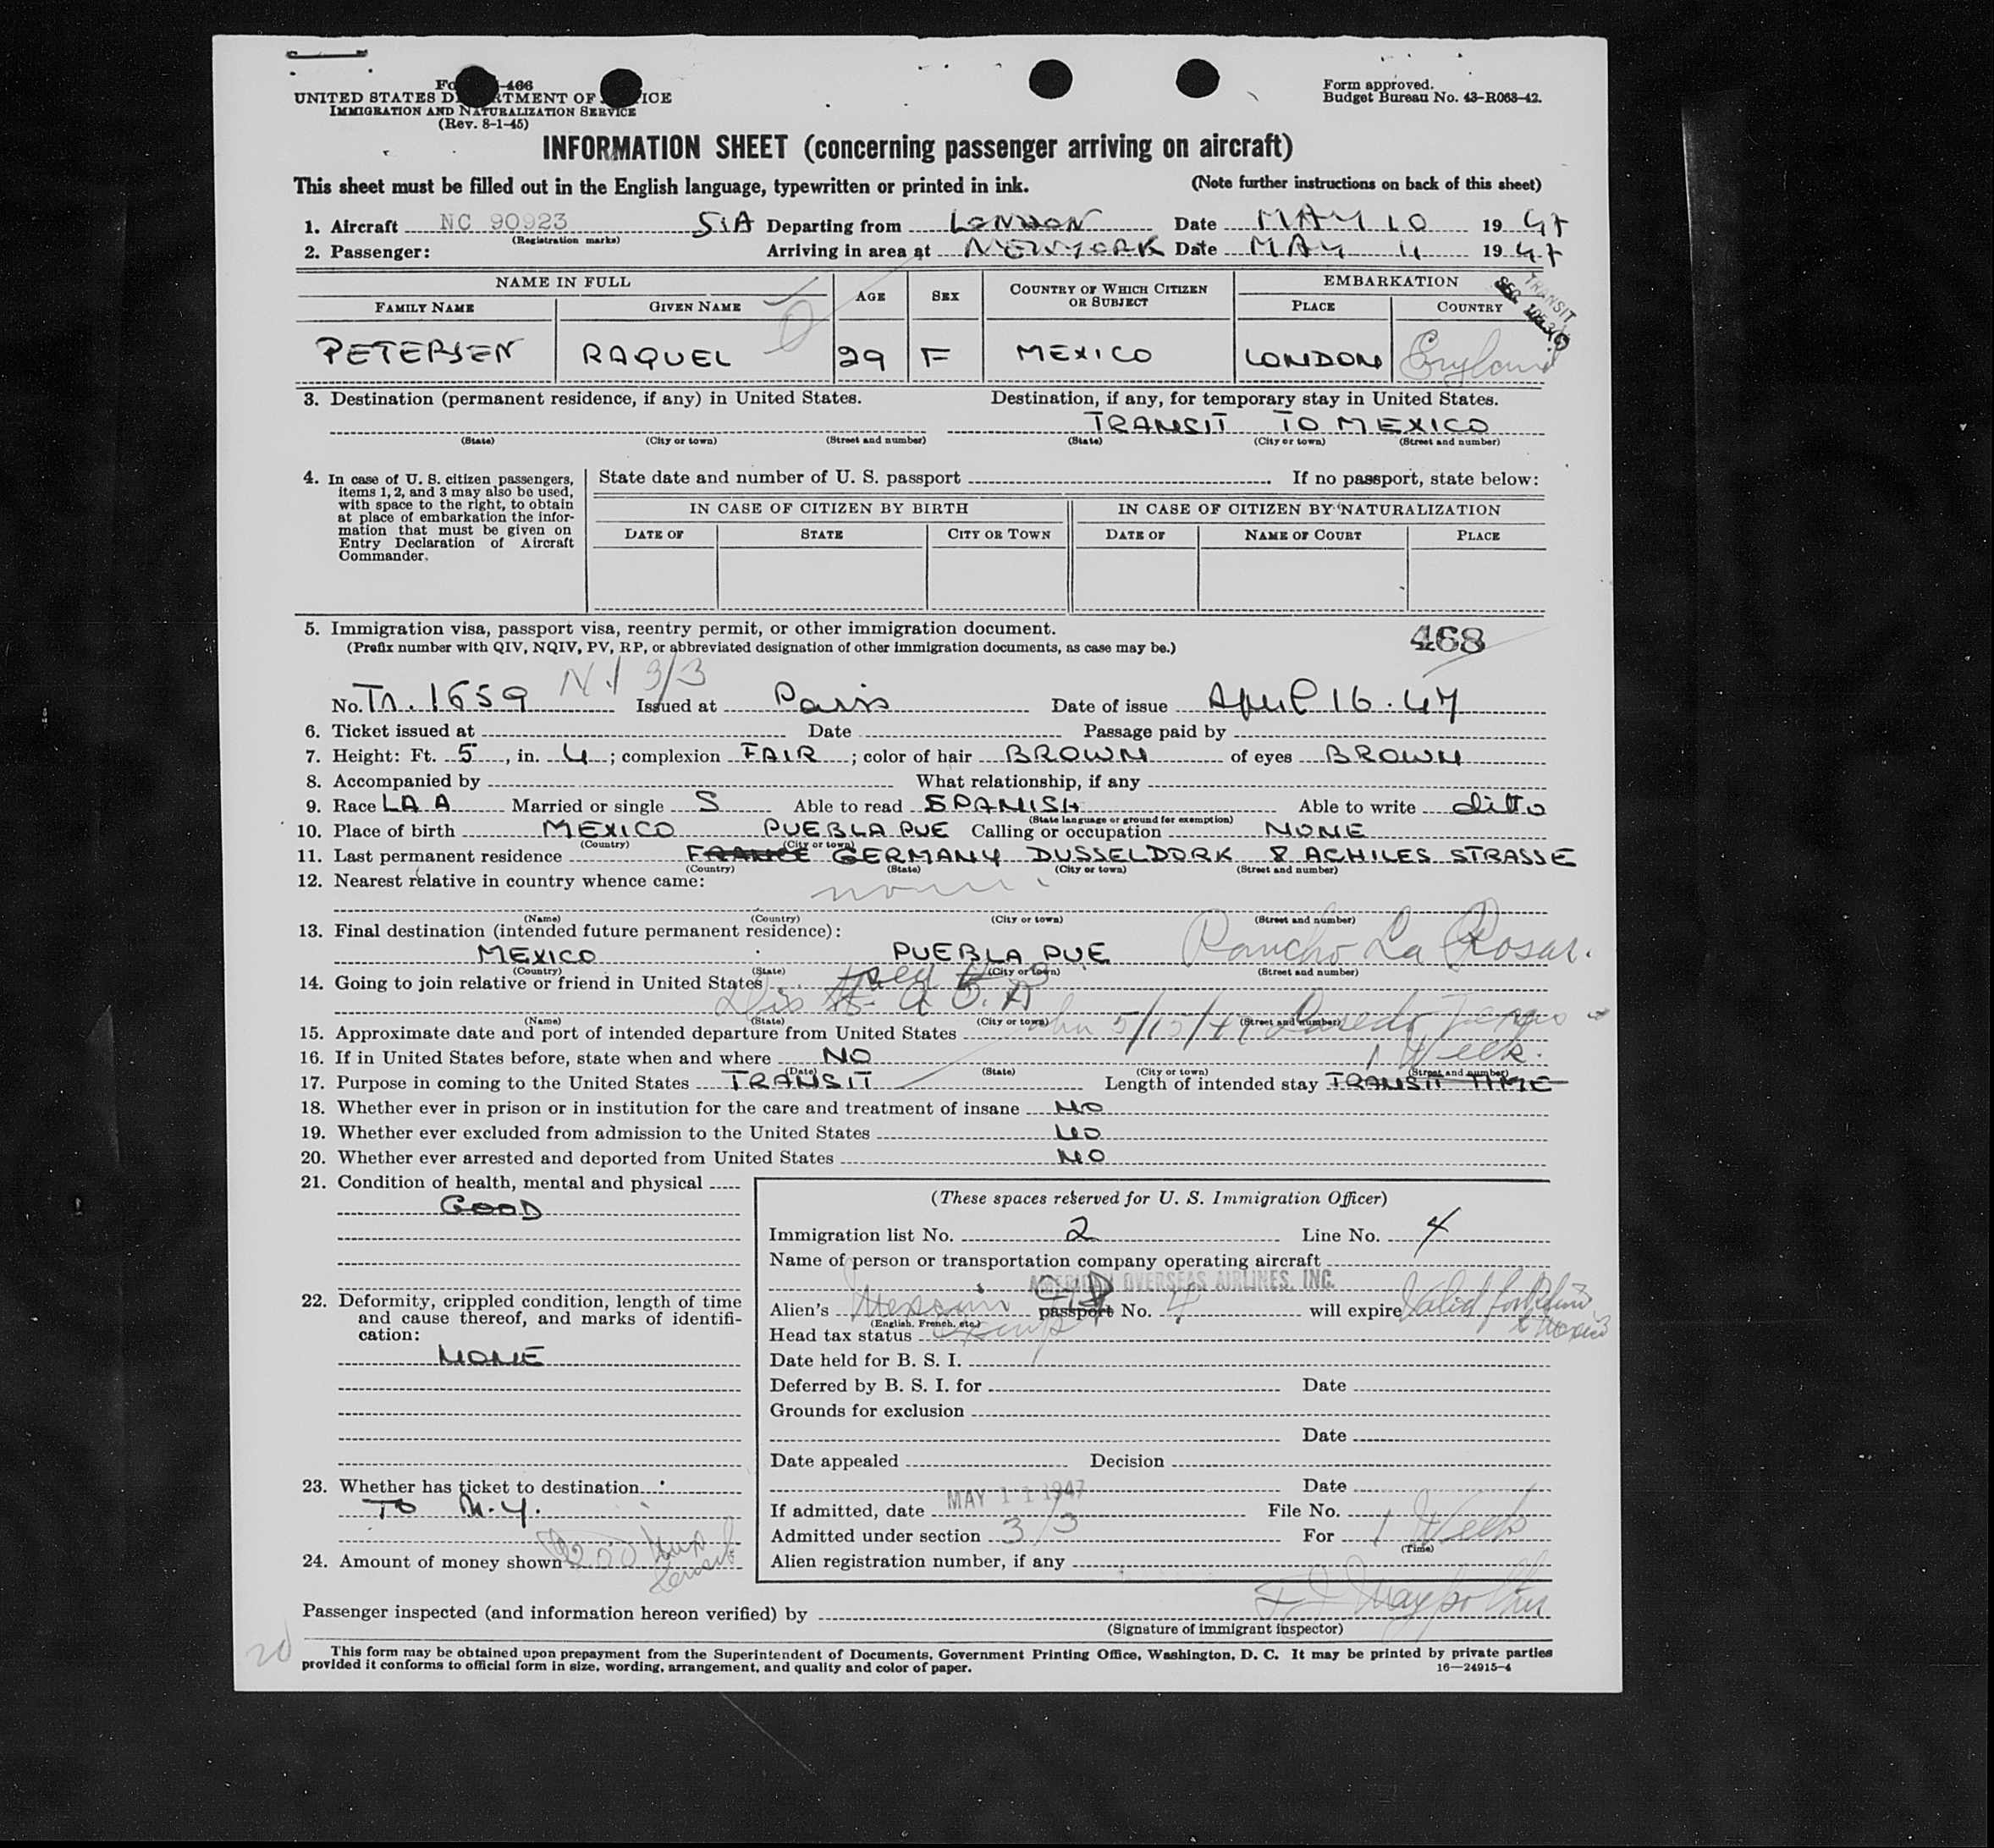 Form approved.
Budget Bureau No. 43-R063-42.
-466
UNITED STATES DEPARTMENT OF JUSTICE
IMMIGRATION AND NATURALIZATION SERVICE
(Rev. 8-1-45)
INFORMATION SHEET (concerning passenger arriving on aircraft)
This sheet must be filled out in the English language, typewritten or printed in ink. (Note further instructions on back of this sheet)
1. Aircraft NC 90923 Departing from LONDON Date MAY 10 1947
(Registration marks)
2. Passenger: Arriving in area at NEWYORK Date MAY 11 1947
NAME IN FULL AGE SEX COUNTRY OF WHICH CITIZEN OR SUBJECT EMBARKATION
FAMILY NAME GIVEN NAME PLACE COUNTRY
TRANSIT
PETERSEN RAQUEL 29 F MEXICO LONDON England
3. Destination (permanent residence, if any) in United States. Destination, if any, for temporary stay in United States.
TRANSIT TO MEXICO
(State) (City or town) (Street and number) (State) (City or town) (Street and number)
4. In case of U. S. citizen passengers, items 1, 2, and 3 may also be used, with space to the right, to obtain at place of embarkation the information that must be given on Entry Declaration of Aircraft Commander.
State date and number of U. S. passport If no passport, state below:
IN CASE OF CITIZEN BY BIRTH IN CASE OF CITIZEN BY NATURALIZATION
DATE OF STATE CITY OR TOWN DATE OF NAME OF COURT PLACE
5. Immigration visa, passport visa, reentry permit, or other immigration document. 468
(Prefix number with QIV, NQIV, PV, RP, or abbreviated designation of other immigration documents, as case may be.)
No. Tr. 1659 3/3 Issued at Paris Date of issue April 16. 47
6. Ticket issued at Date Passage paid by
7. Height: Ft. 5, in. 4; complexion FAIR; color of hair BROWN of eyes BROWN
8. Accompanied by What relationship, if any
9. Race LA A Married or single S Able to read SPANISH Able to write ditto
(State language or ground for exemption)
10. Place of birth MEXICO PUEBLA PUE Calling or occupation NONE
(Country) (City or town)
11. Last permanent residence FRANCE GERMANY DUSSELDORK 8 ACHILES STRASSE
(Country) (State) (City or town) (Street and number)
12. Nearest relative in country whence came: none
(Name) (Country) (City or town) (Street and number)
13. Final destination (intended future permanent residence):
MEXICO PUEBLA PUE Rancho La Rosar.
(Country) (State) (City or town) (Street and number)
14. Going to join relative or friend in United States
(Name) (State) (City or town) (Street and number)
15. Approximate date and port of intended departure from United States 5/15/47 Laredo Texas
16. If in United States before, state when and where NO 1 Week.
(Date) (State) (City or town) (Street and number)
17. Purpose in coming to the United States TRANSIT Length of intended stay TRANSIT TIME
18. Whether ever in prison or in institution for the care and treatment of insane NO
19. Whether ever excluded from admission to the United States NO
20. Whether ever arrested and deported from United States NO
21. Condition of health, mental and physical
GOOD
22. Deformity, crippled condition, length of time and cause thereof, and marks of identification:
NONE
23. Whether has ticket to destination
TO N.Y.
24. Amount of money shown
(These spaces reserved for U. S. Immigration Officer)
Immigration list No. 2 Line No. 4
Name of person or transportation company operating aircraft
AMERICAN OVERSEAS AIRLINES, INC.
Alien's Mexican passport No. 4 will expire Valid for Return to Mexico
(English, French, etc.)
Head tax status Exempt
Date held for B. S. I.
Deferred by B. S. I. for Date
Grounds for exclusion
Date
Date appealed Decision
Date
If admitted, date MAY 11 1947 File No.
Admitted under section 3/3 For 1 Week
(Time)
Alien registration number, if any
Passenger inspected (and information hereon verified) by
(Signature of immigrant inspector)
20
This form may be obtained upon prepayment from the Superintendent of Documents, Government Printing Office, Washington, D. C. It may be printed by private parties
provided it conforms to official form in size, wording, arrangement, and quality and color of paper.
16—24915-4